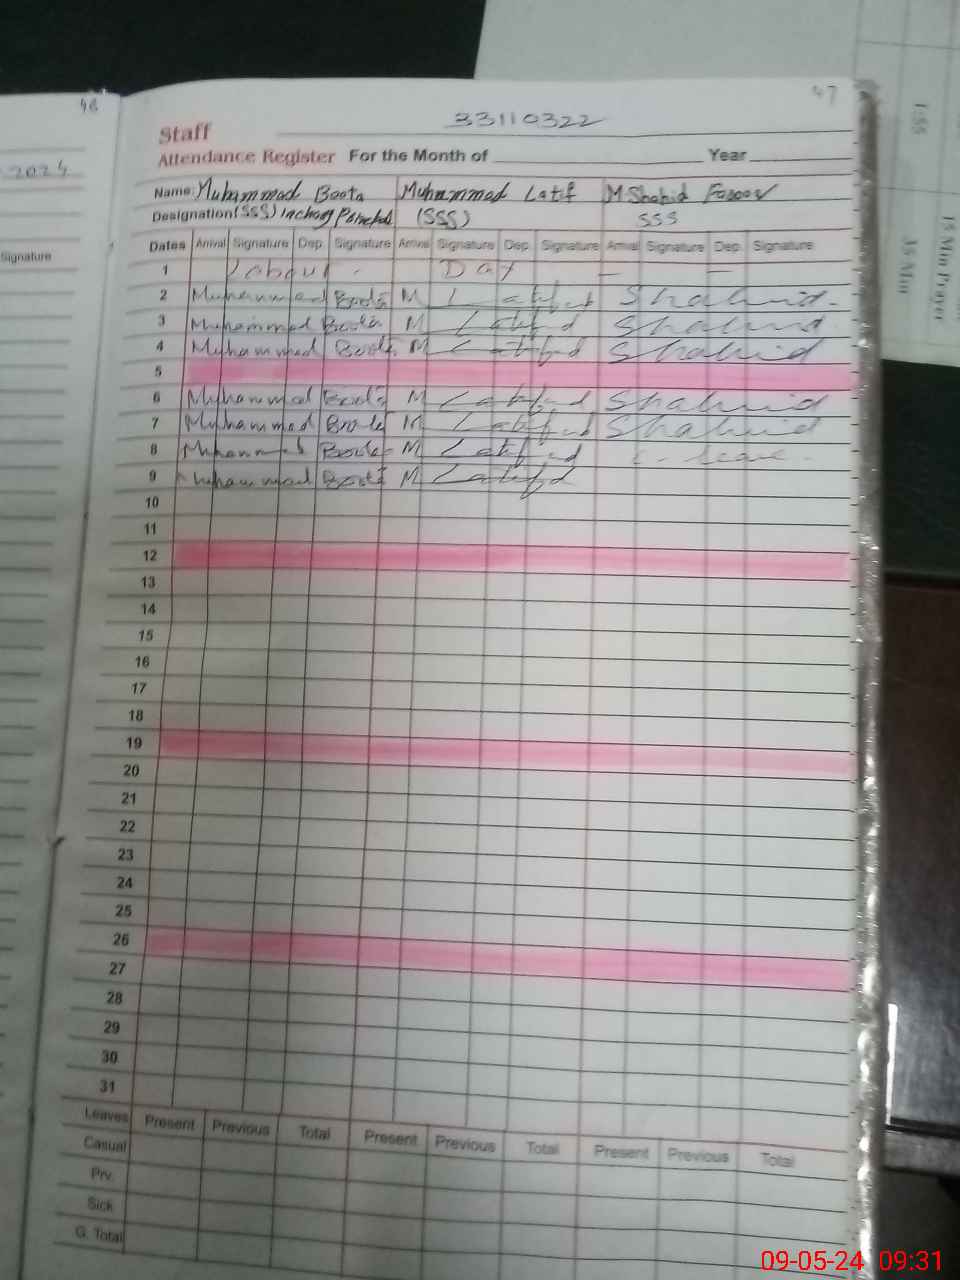 48
47
33110322
Staff
Attendance Register For the Month of Year
2024
Name: Muhammad Boota Muhammad Latif M Shahid Farooq
Designation (SSS) Incharg Principal (SSS) SSS
Signature
Dates Arrival Signature Dep. Signature Arrival Signature Dep. Signature Arrival Signature Dep. Signature
1 Labour - Day — —
2 Muhammad Boota M Latif Shahid
3 Muhammad Boota M Latif Shahid
4 Muhammad Boota M Latif Shahid
5
6 Muhammad Boota M Latif Shahid
7 Muhammad Boota M Latif Shahid
8 Muhammad Boota M Latif C-leave
9 Muhammad Boota M Latif
10
11
12
13
14
15
16
17
18
19
20
21
22
23
24
25
26
27
28
29
30
31
Leaves Present Previous Total Present Previous Total Present Previous Total
Casual
Prv.
Sick
G. Total
1:55
15 Min Prayer
35 Min
09-05-24 09:31